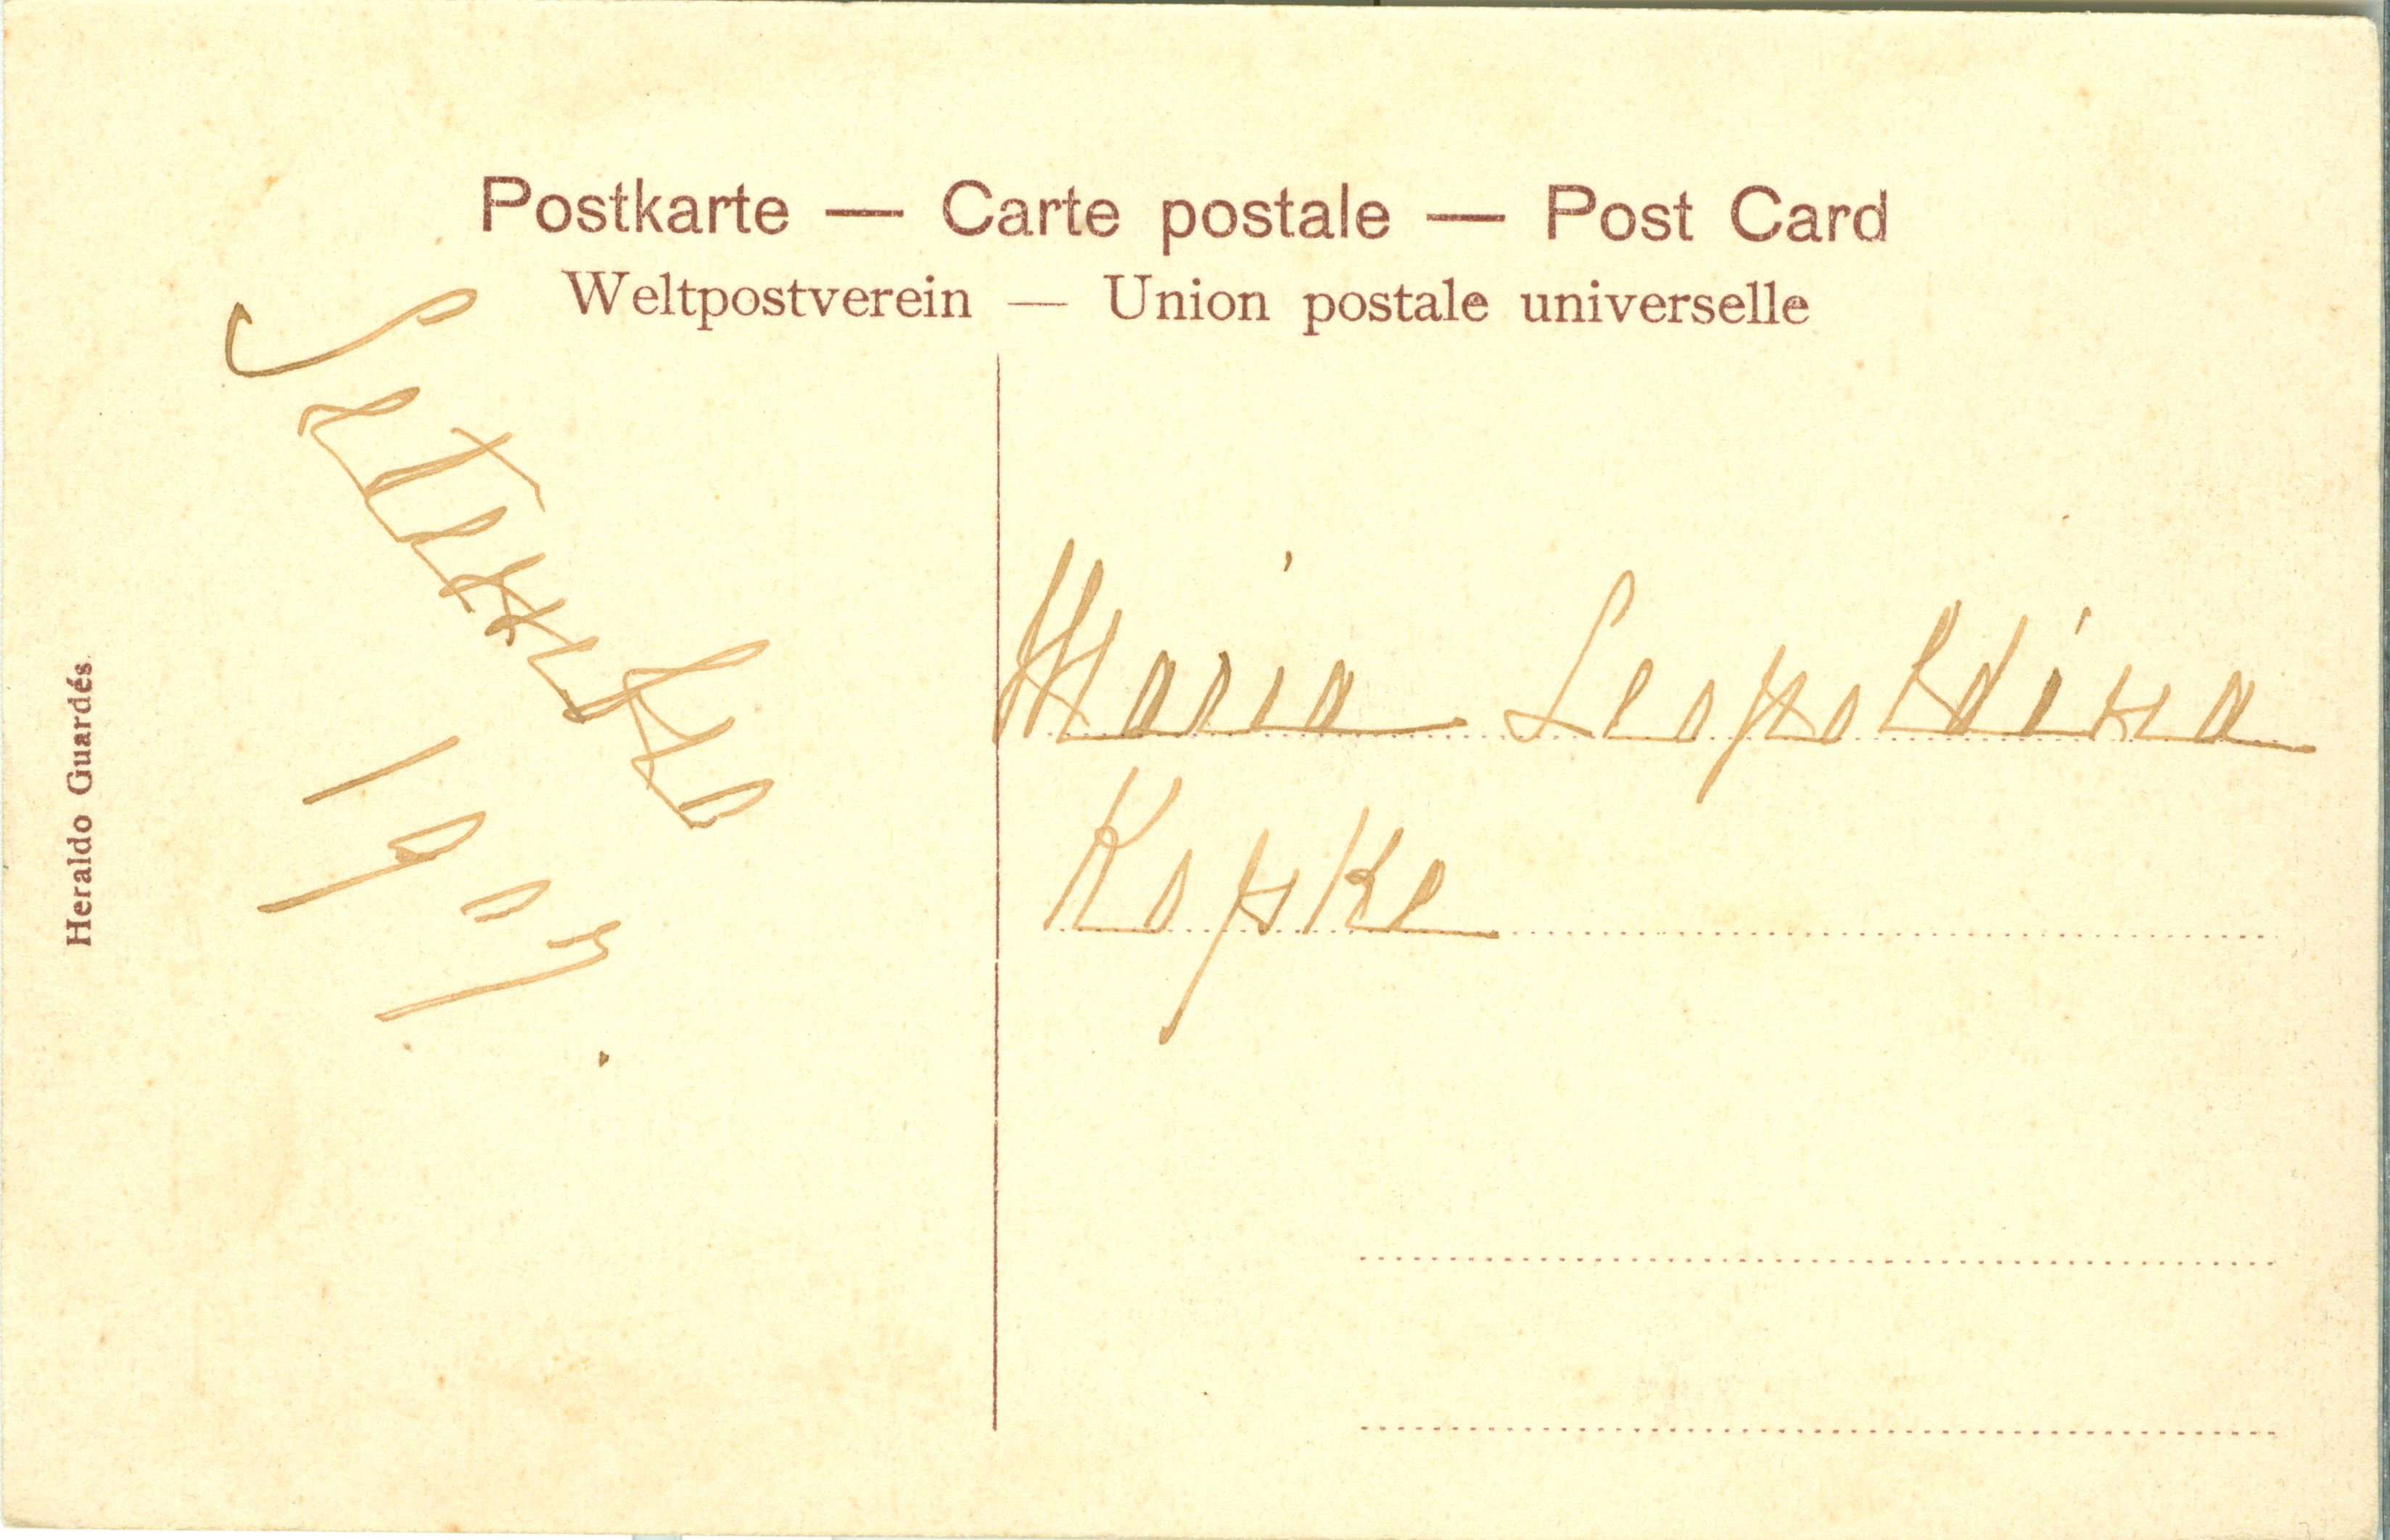 Postkarte — Carte postale — Post Card
Weltpostverein — Union postale universelle
Heraldo Guardés
Setembro
1907.
Maria Leopoldina
Kopke